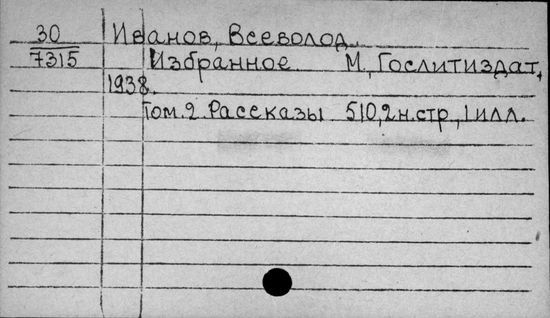 30 Иванов, Всеволод.
7315 Избранное М., Гослитиздат,
1938.
Том. 2. Рассказы 510, 2 н. стр., 1 илл.